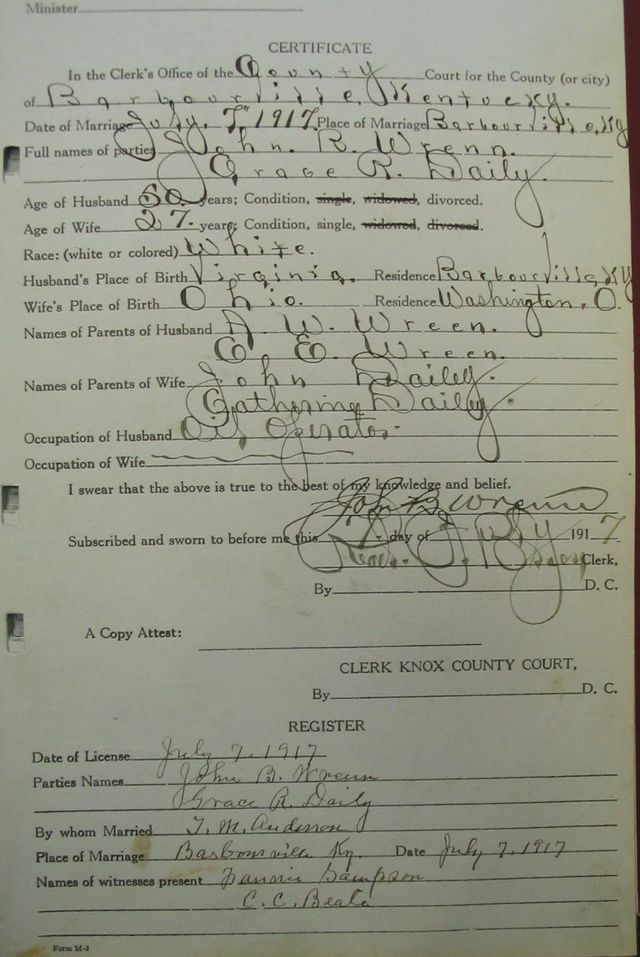 Minister
CERTIFICATE
In the Clerk's Office of the County Court for the County (or city)
of Barbourville, Kentucky.
Date of Marriage July. 7" 1917. Place of Marriage Barbourville, Ky
Full names of parties John. B. Wrenn.
Grace R. Daily.
Age of Husband 50. years; Condition, single, widowed, divorced.
Age of Wife 27. years; Condition, single, widowed, divorced.
Race: (white or colored) White.
Husband's Place of Birth Virginia. Residence Barbourville, Ky
Wife's Place of Birth Ohio. Residence Washington, O.
Names of Parents of Husband A. W. Wreen.
E. Wreen.
Names of Parents of Wife John Dailey.
Catherine Dailey.
Occupation of Husband Oil Operator.
Occupation of Wife
I swear that the above is true to the best of my knowledge and belief.
John B Wrenn
Subscribed and sworn to before me this 7. day of July 1917
Clerk,
By D. C.
A Copy Attest:
CLERK KNOX COUNTY COURT,
By D. C.
REGISTER
Date of License July 7, 1917
Parties Names John B. Wrenn
Grace R. Daily
By whom Married T. M. Anderson
Place of Marriage Barbourville Ky. Date July 7, 1917
Names of witnesses present Fannie Sampson
C. C. Beale
Form M-3